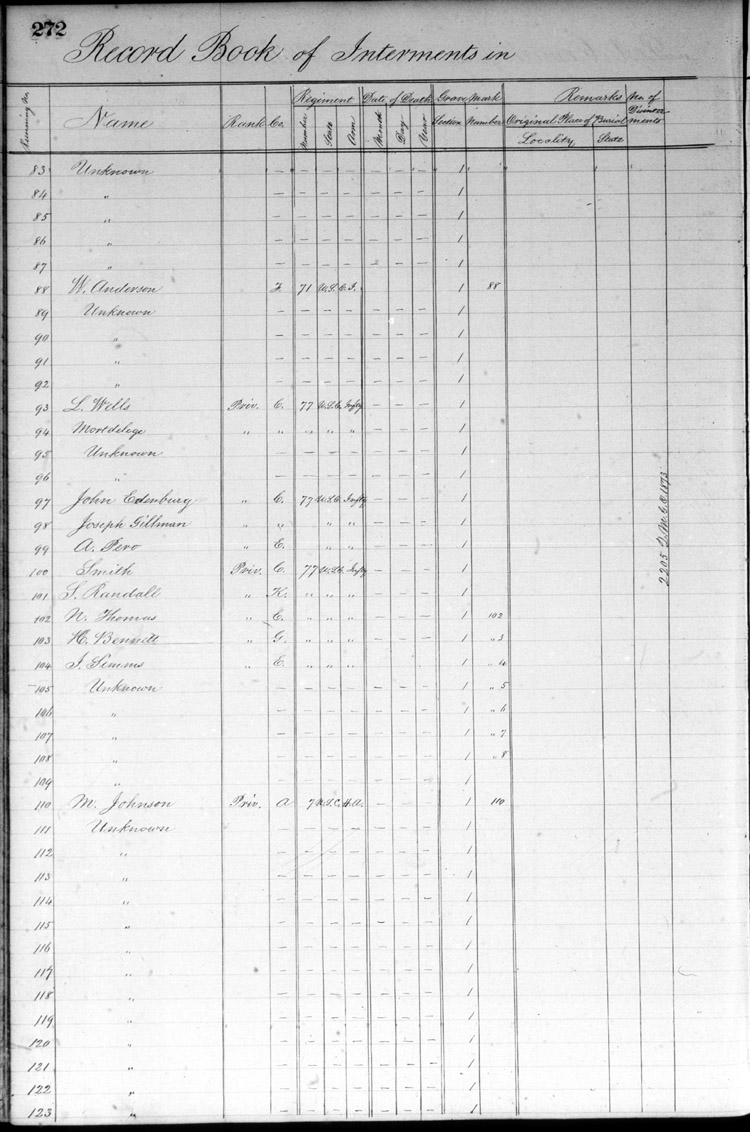 272
Record Book of Interments in
Running No. Name Rank Co. Regiment Number State Arm Date of Death Month Day Year Grave Mark Section Number Remarks Original Place of Burial Locality State No. of Disinterments
83 Unknown — — — — — — — 1
84 " — — — — — — — 1
85 " — — — — — — — 1
86 " — — — — — — — 1
87 " — — — — — — — 1
88 W. Anderson F 71 U.S.C. I. 1 88
89 Unknown — — — — — — — 1
90 " — — — — — — — 1
91 " — — — — — — — 1
92 " — — — — — — — 1
93 L. Wells Priv. C. 77 U.S.C. Infty — — — 1
94 " " " " " — — — 1
95 Unknown — — — — — — — 1
96 " — — — — — — — 1
97 John Edenburg " C. 77 U.S.C. Infty — — — 1
98 Joseph Gillman " " " " — — — 1
99 A. Pero " E. " " — — — 1
100 Smith Priv. C. 77 U.S.C. Infty — — — 1
101 S. Randall " K. " " " — — — 1
102 N. Thomas " E. " " " — — — 1 102
103 H. Bennett " G. " " " — — — 1 " 3
104 J. Simms " E. " " " — — — 1 " 4
105 Unknown — — — — — — — 1 " 5
106 " — — — — — — — 1 " 6
107 " — — — — — — — 1 " 7
108 " — — — — — — — 1 " 8
109 " — — — — — — — 1
110 M. Johnson Priv. A 7 U.S.C. H.A. — — — 1 110
111 Unknown — — — — — — — 1
112 " — — — — — — — 1
113 " — — — — — — — 1
114 " — — — — — — — 1
115 " — — — — — — — 1
116 " — — — — — — — 1
117 " — — — — — — — 1
118 " — — — — — — — 1
119 " — — — — — — — 1
120 " — — — — — — — 1
121 " — — — — — — — 1
122 " — — — — — — — 1
123 " — — — — — — — 1
2205 Q.M.G.O. 1873